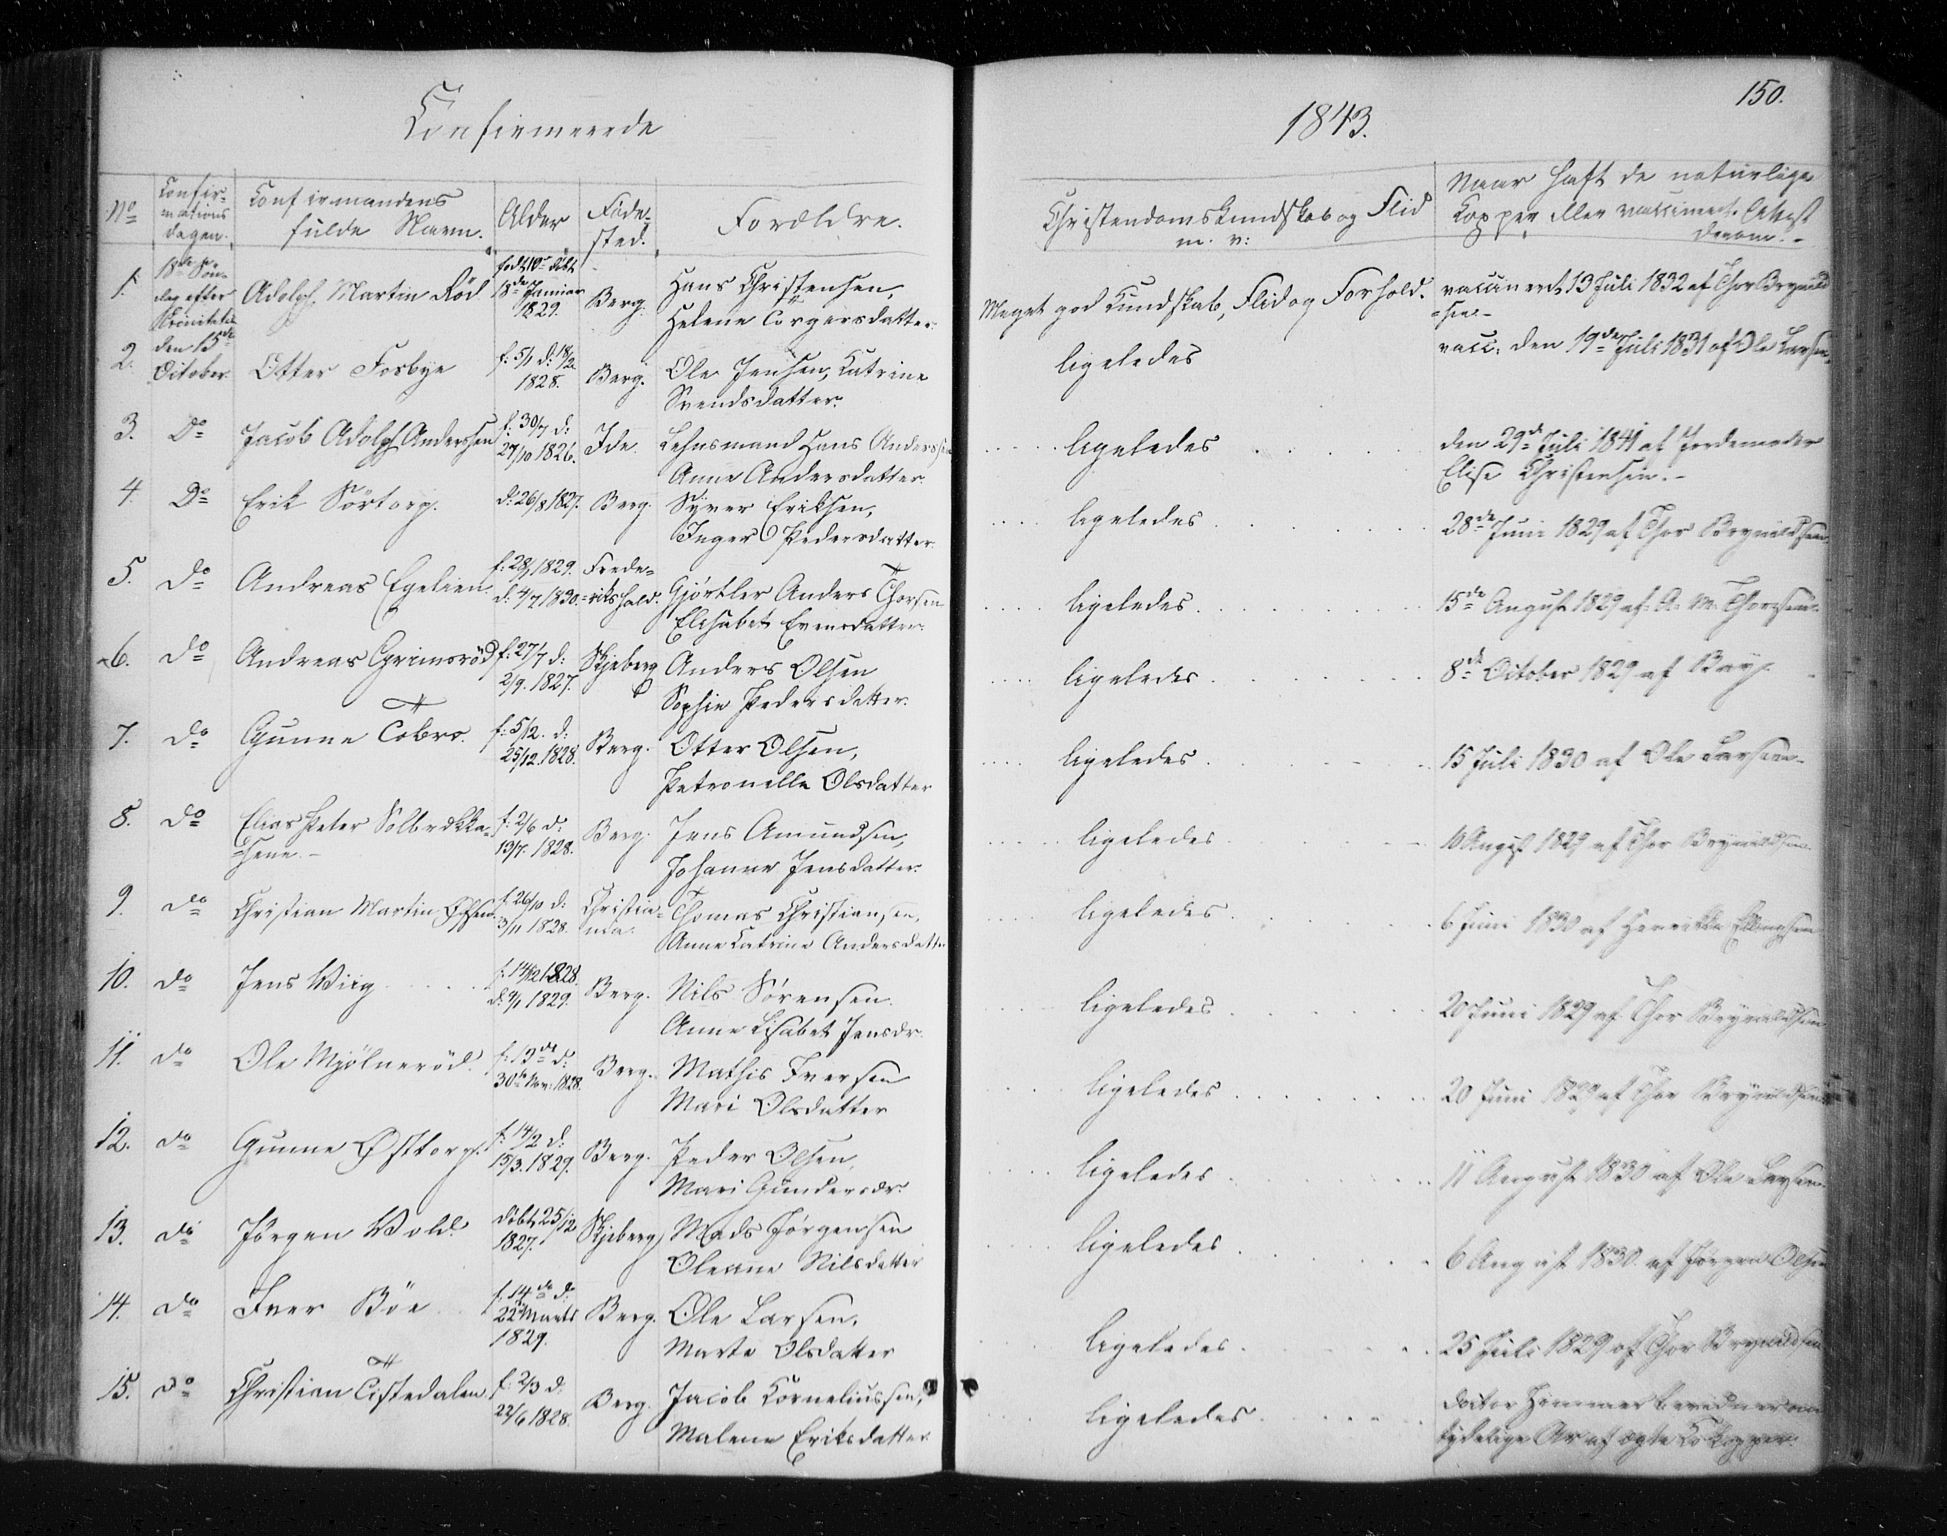 150.
Confirmerede
1843.
No
Confir-
mations
dagen.
Confirmandens
fulde Navn.
Alder
Føde-
sted.
Forældre.
Christendomskundskab og Flid
m. v:
Naar haft de naturlige
Kopper eller vaccineret. Attest
derom.-
1.
18de Søn-
dag efter
Trinitatis
den 15de
October
Adolph Martin Röd
født 10 døbt
18de Januar
1829.
Berg.
Hans Christensen,
Helene Torgersdatter.
Meget god Kundskab, Flid og Forhold.
vaccineret 13 Juli 1832 af Thor Brynild
=sen.-
2.
Otter Fosbye
f: 5/1 d: 18/2
1828.
Berg.
Ole Jensen, Katrine
Svendsdatter.
ligeledes
vacc. den 19de Juli 1831 af Ole Larsen.
3. Do
Jacob Adolph Anderssen
f. 30/7 d:
27/10 1826.
Ide.
Lehnsmand Hans Anderssen
Anne Andersdatter
ligeledes
den 29de Juli 1841 af Jordemoder
Elise Christensen.-
4. Do
Erik Sörtorp.
d: 26/8 1827.
Berg
Syver Eriksen,
Inger Pedersdatter.
ligeledes
28de Juni 1829 af Thor Brynildsen.
5. do
Andreas Egelien
f: 28/ 1829.
d. 4/7 1830.
Frede=
=rikshald.
Gjørtler Anders Thorsen
Elisabet Evensdatter.
ligeledes.
15de August 1829 af A. M. Thorsen.
6. do
Andreas Grimsröd
f: 27/7 d:
2/9. 1827.
Skjeberg
Anders Olsen
Sophie Pedersdatter.
ligeledes
8de October 1829 af Bay.
7. do
Gunne Tobro.
f: 5/12. d:
25/12. 1828.
Berg.
Otter Olsen,
Petronelle Olsdatter
ligeledes
15 Juli 1830 af Ole Larsen.
8. do
Elias Peter Solbrekka=
=sene.-
f. 2/6 d:
13/7. 1828.
Berg.
Jens Amundsen,
Johanne Jensdatter.
ligeledes
10 August 1829 af Thor Brynildsen.
9. do
Christian Martin
f. 26/10 d:
3/11 1828.
Christia=
nia.
Thomas Christiansen,
Anne Katrine Andersdatter
ligeledes
6 Juni 1830 af Henrikke Ellingsen
10. do
Jens Wiig
f. 14/12 1828.
d. 4/1 1829.
Berg.
Nils Sørensen.
Anne Lisabet Jensdr.
ligeledes
20 Juni 1829 af Thor Brynildsen
11. do
Ole Mjölneröd.
f. 13de d:
30te Nov: 1828.
Berg.
Mathis Iversen
Mari Olsdatter
ligeledes
20 Juni 1829 af Thor Brynildsen
12. do
Gunne Østtorp
f. 14/2 d:
15/3. 1829.
Berg.
Peder Olsen,
Mari Gundersdr.
ligeledes
11 August 1830 af Ole Larsen.
13. do
Jørgen Wold.
døbt 25/12
1827.
Skjeberg
Mads Jørgensen
Oleane Nilsdatter
ligeledes
6 August 1830. af Jørgen Olsen
14. do
Iver Böe
f. 14de d:
22de Marts
1829.
Berg.
Ole Larsen.
Marte Olsdatter
ligeledes.
25 Juli 1829 af Thor Brynildsen
15. do
Christian Tistedalen
f. 2/3 d.
22/6 1828.
Berg.
Jacob Korneliussen,
Malene Eriksdatter
ligeledes
Doctor
tydelige Ar af ægte KoKopper.